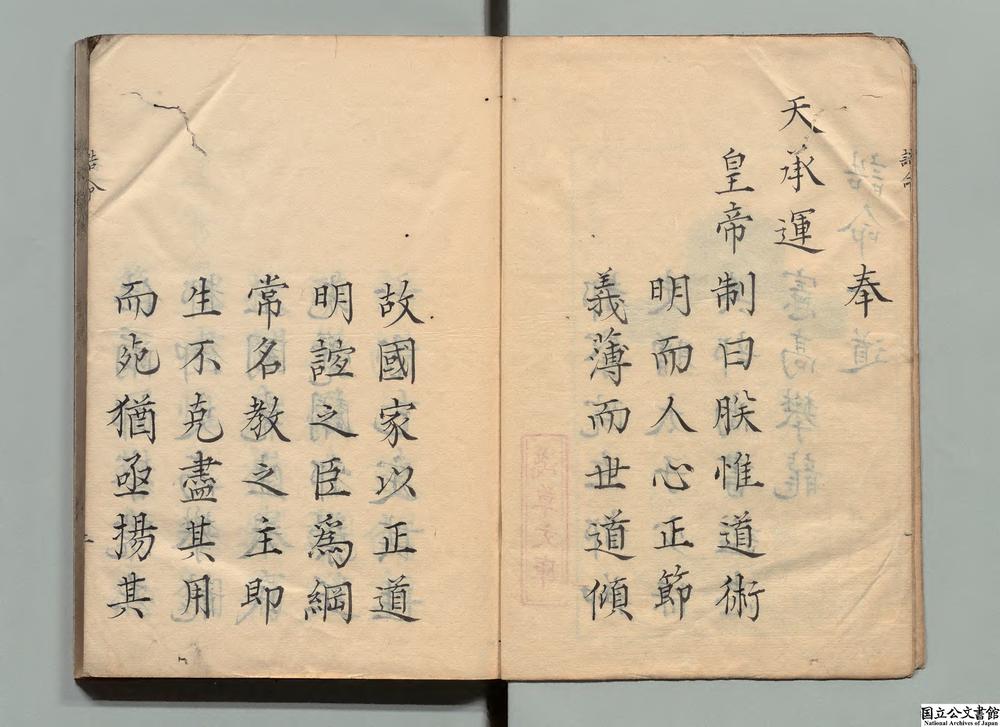 奉
天承運
皇帝制曰朕惟道術
明而人心正節
義薄而世道傾
故國家以正道
明諠之臣爲綱
常名教之主即
生不克盡其用
而死猶亟揚其
誥命
国立公文書館
National Archives of Japan